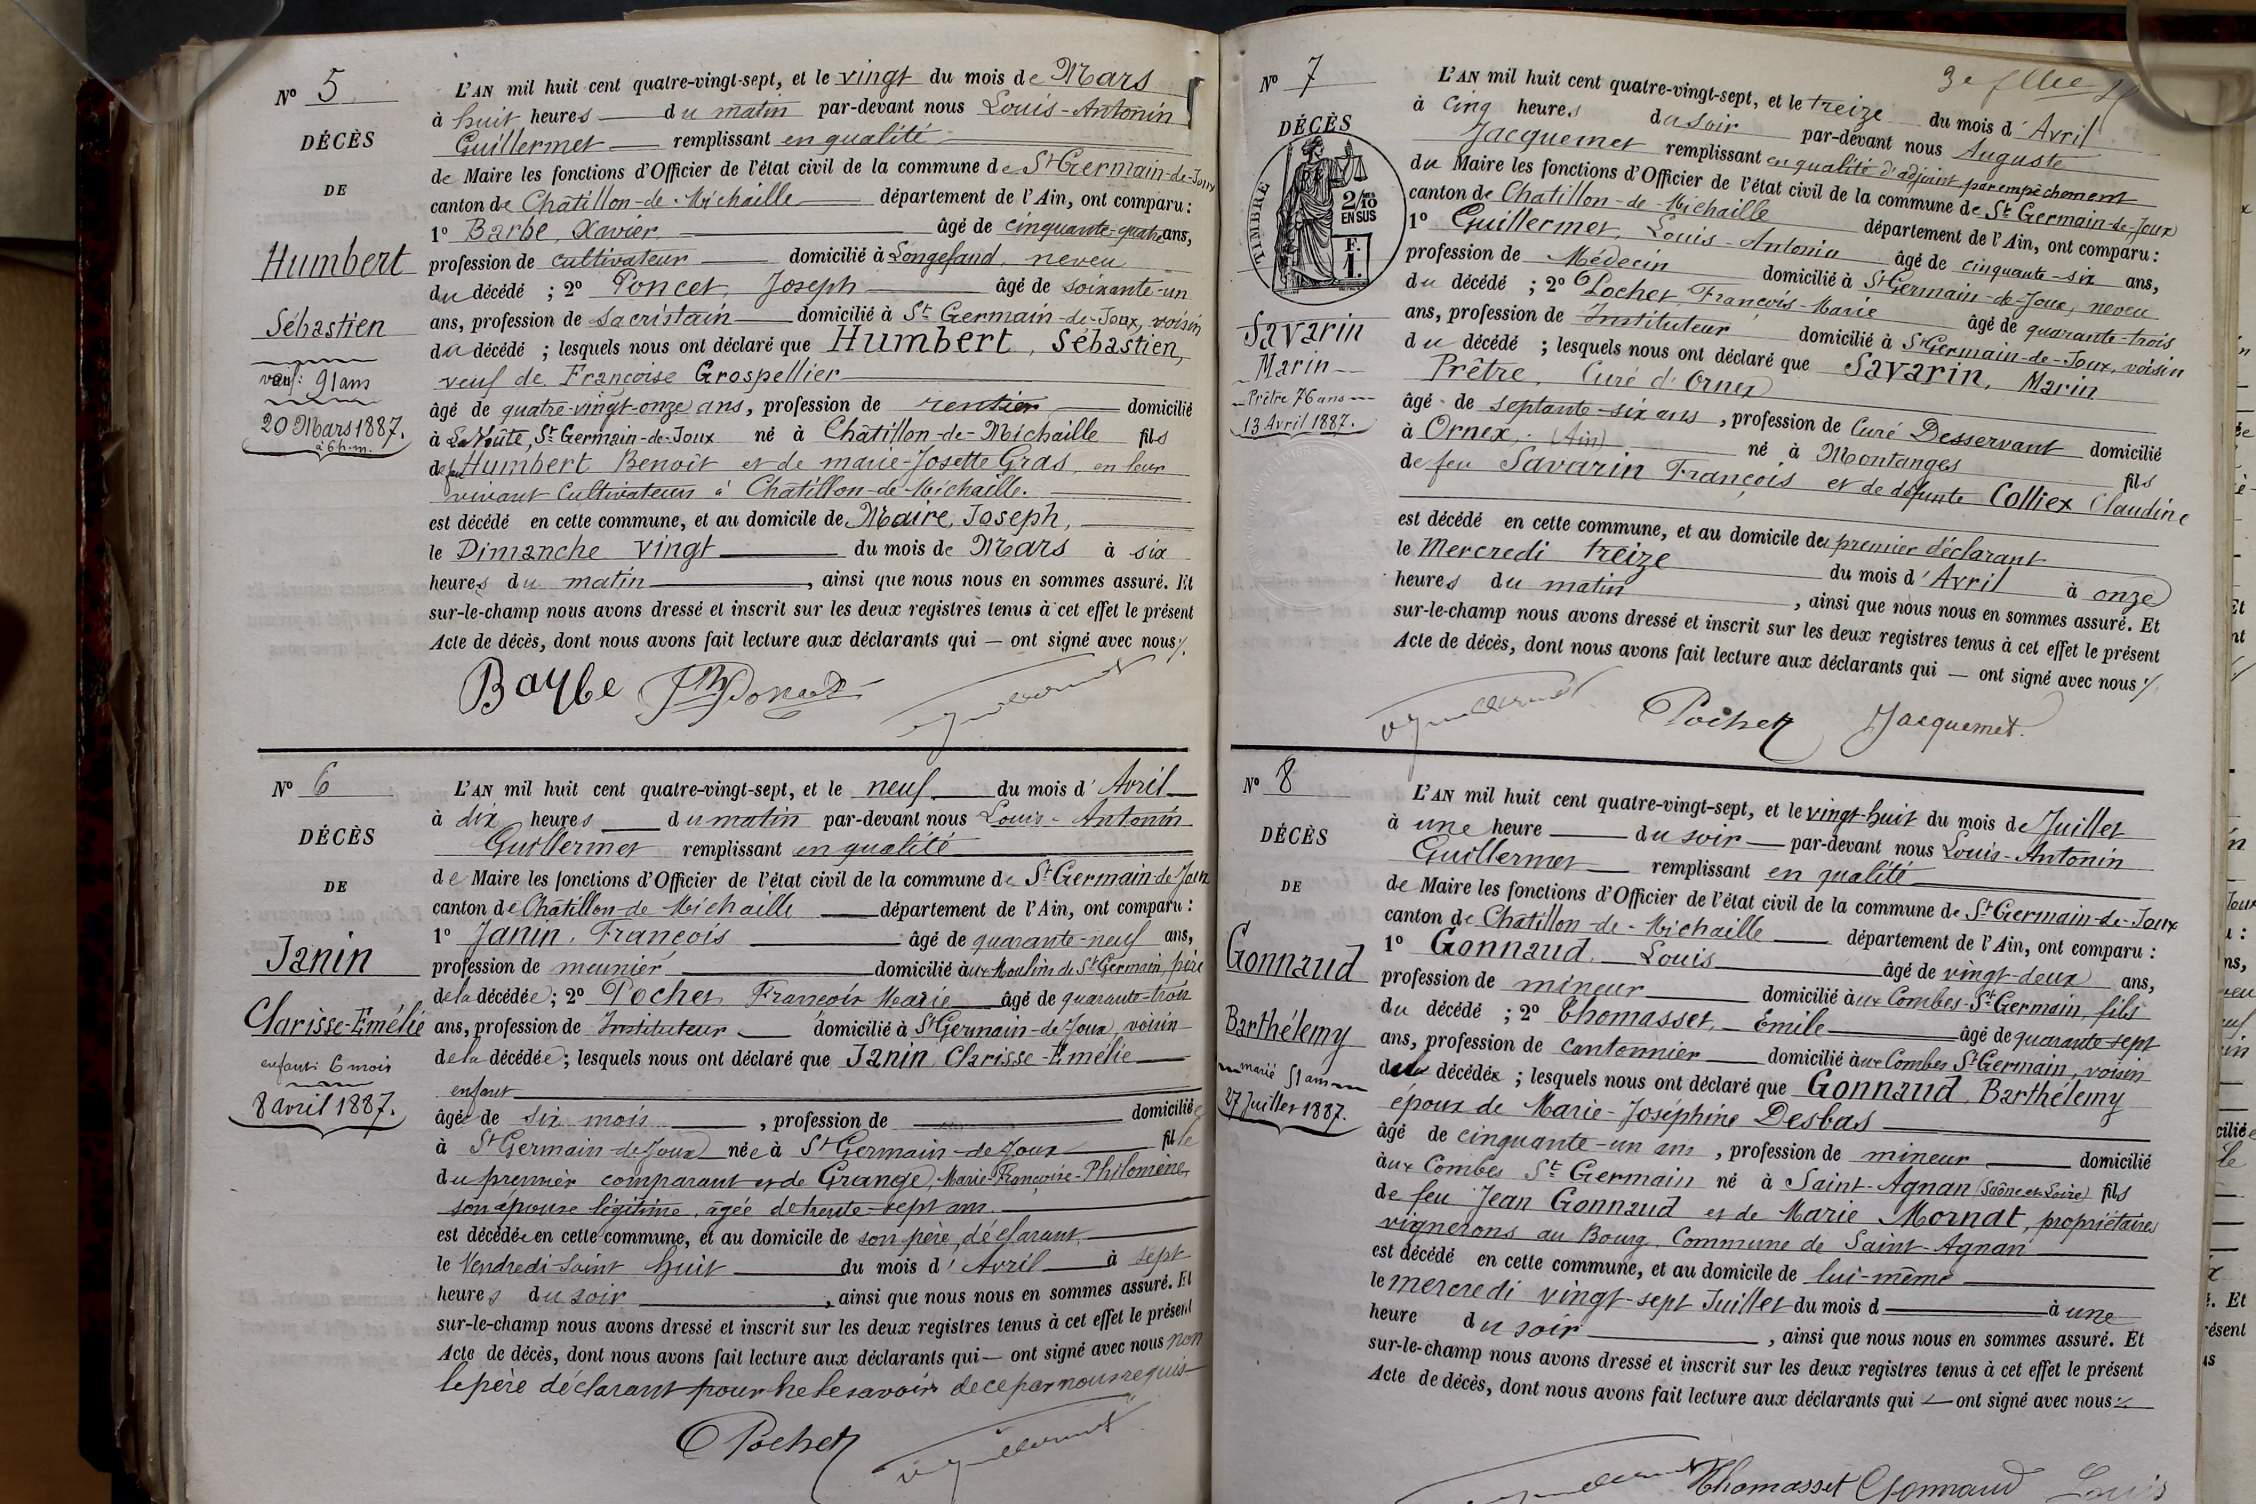 N° 5
DÉCÈS
DE
Humbert
Sébastien
veuf: 91 ans
20 Mars 1887.
à 6 h. m.
L'AN mil huit cent quatre-vingt-sept, et le vingt du mois de Mars
à huit heures du matin par-devant nous Louis-Antonin
Guillermet remplissant en qualité
de Maire les fonctions d'Officier de l'état civil de la commune de St Germain-de-Joux
canton de Châtillon-de-Michaille département de l'Ain, ont comparu :
1° Barbe, Xavier, âgé de cinquante-quatre ans,
profession de cultivateur domicilié à Longefand, neveu
du décédé ; 2° Poncet, Joseph âgé de soixante-un
ans, profession de sacristain domicilié à St Germain-de-Joux, voisin
du décédé ; lesquels nous ont déclaré que Humbert, Sébastien,
veuf de Françoise Grospellier
âgé de quatre-vingt-onze ans, profession de rentier domicilié
à La Voûte, St Germain-de-Joux né à Châtillon-de-Michaille fils
de feu Humbert Benoît et de marie-Josette Gras, en leur
vivant Cultivateurs à Châtillon-de-Michaille.
est décédé en cette commune, et au domicile de Maire, Joseph,
le Dimanche vingt du mois de Mars à six
heures du matin, ainsi que nous nous en sommes assuré. Et
sur-le-champ nous avons dressé et inscrit sur les deux registres tenus à cet effet le présent
Acte de décès, dont nous avons fait lecture aux déclarants qui — ont signé avec nous /.
Baybe Poncet Guillermet
N° 6
DÉCÈS
DE
Janin
Clarisse-Emélie
enfant: 6 mois
8 avril 1887.
L'AN mil huit cent quatre-vingt-sept, et le neuf du mois d'Avril
à dix heures du matin par-devant nous Louis-Antonin
Guillermet remplissant en qualité
de Maire les fonctions d'Officier de l'état civil de la commune de St Germain-de-Joux
canton de Châtillon-de Michaille département de l'Ain, ont comparu :
1° Janin, François âgé de quarante-neuf ans,
profession de meunier domicilié aux Moulins de St Germain, père
de la décédée ; 2° Pochet François Marie âgé de quarante-trois
ans, profession de Instituteur domicilié à St Germain-de-Joux, voisin
de la décédée ; lesquels nous ont déclaré que Janin Clarisse-Emélie
enfant
âgée de six mois, profession de domiciliée
à St Germain-de-Joux née à St Germain-de-Joux fille
du premier comparant et de Grange, Marie-Françoise-Philomène,
son épouse légitime, âgée de trente-sept ans.
est décédée en cette commune, et au domicile de son père, déclarant,
le Vendredi-Saint huit du mois d'Avril à sept
heures du soir, ainsi que nous nous en sommes assuré. Et
sur-le-champ nous avons dressé et inscrit sur les deux registres tenus à cet effet le présent
Acte de décès, dont nous avons fait lecture aux déclarants qui — ont signé avec nous non
le père déclarant pour ne le savoir de ce par nous requis
Pochet Guillermet
3e flle
N° 7
DÉCÈS
TIMBRE
2/10 EN SUS
F. 1.
Savarin
Marin
Prêtre 76 ans
13 Avril 1887.
L'AN mil huit cent quatre-vingt-sept, et le treize du mois d'Avril
à cinq heures du soir par-devant nous Auguste
Jacquemet remplissant en qualité d'adjoint par empêchement
du Maire les fonctions d'Officier de l'état civil de la commune de St Germain-de-Joux
canton de Châtillon-de-Michaille département de l'Ain, ont comparu :
1° Guillermet, Louis-Antonin âgé de cinquante-six ans,
profession de Médecin domicilié à St Germain-de-Joux, neveu
du décédé ; 2° Pochet, François-Marie âgé de quarante-trois
ans, profession de Instituteur domicilié à St Germain-de-Joux, voisin
du décédé ; lesquels nous ont déclaré que Savarin, Marin
Prêtre, Curé d'Ornex
âgé de septante-six ans, profession de Curé Desservant domicilié
à Ornex, (Ain) né à Montanges fils
de feu Savarin François et de défunte Colliex Claudine
est décédé en cette commune, et au domicile du premier déclarant
le Mercredi treize du mois d'Avril à onze
heures du matin, ainsi que nous nous en sommes assuré. Et
sur-le-champ nous avons dressé et inscrit sur les deux registres tenus à cet effet le présent
Acte de décès, dont nous avons fait lecture aux déclarants qui — ont signé avec nous /.
Guillermet Pochet Jacquemet.
N° 8
DÉCÈS
DE
Gonnaud
Barthélemy
marié 51 ans
27 Juillet 1887.
L'AN mil huit cent quatre-vingt-sept, et le vingt-huit du mois de Juillet
à une heure du soir par-devant nous Louis-Antonin
Guillermet remplissant en qualité
de Maire les fonctions d'Officier de l'état civil de la commune de St Germain-de-Joux
canton de Châtillon-de-Michaille département de l'Ain, ont comparu :
1° Gonnaud, Louis âgé de vingt-deux ans,
profession de mineur domicilié aux Combes-St Germain, fils
du décédé ; 2° Thomasset, Émile âgé de quarante-sept
ans, profession de cantonnier domicilié aux Combes St Germain, voisin
du décédé ; lesquels nous ont déclaré que Gonnaud, Barthélemy
époux de Marie-Joséphine Desbas
âgé de cinquante-un ans, profession de mineur domicilié
aux Combes St Germain né à Saint-Agnan (Saône et Loire) fils
de feu Jean Gonnaud et de Marie Mornat, propriétaires
vignerons au Bourg, Commune de Saint-Agnan
est décédé en cette commune, et au domicile de lui-même
le mercredi vingt-sept Juillet du mois d à une
heure du soir, ainsi que nous nous en sommes assuré. Et
sur-le-champ nous avons dressé et inscrit sur les deux registres tenus à cet effet le présent
Acte de décès, dont nous avons fait lecture aux déclarants qui — ont signé avec nous /.
Guillermet Thomasset Gonnaud Louis